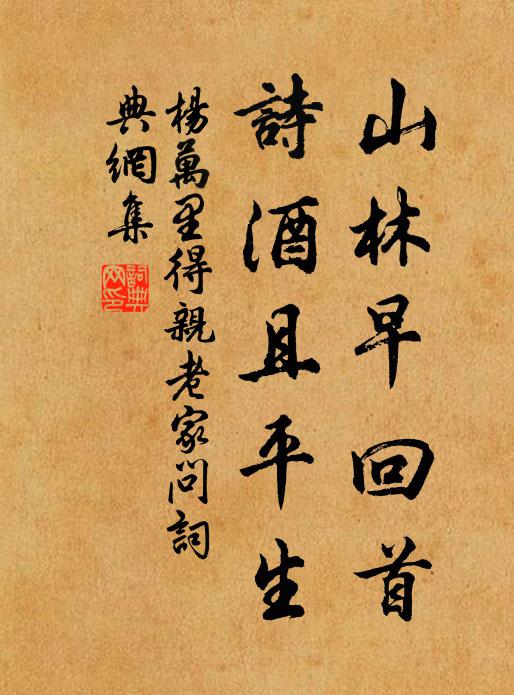 山林早回首
詩酒且平生
楊萬里得親老家問詞
典網集
詞典網印